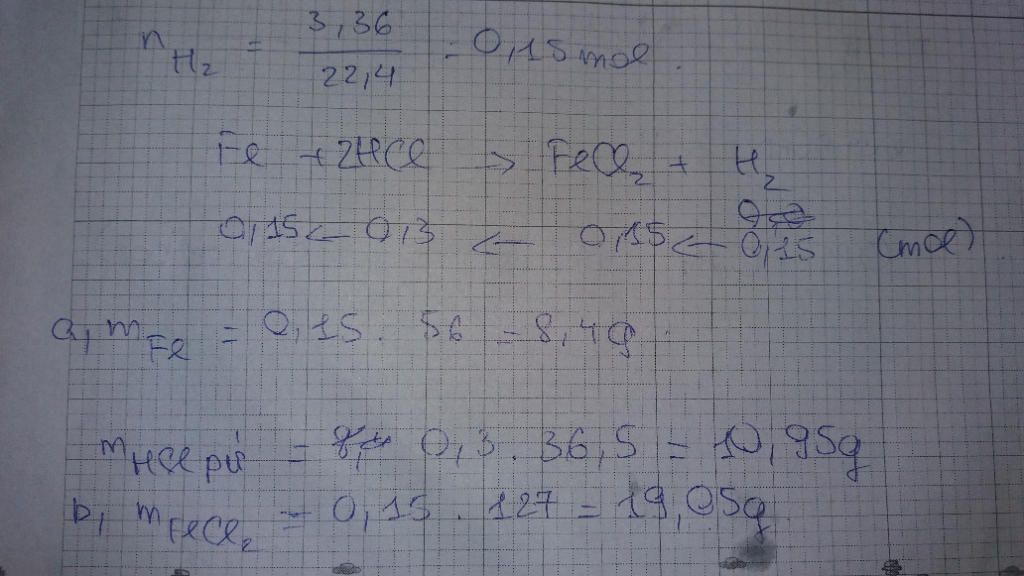 n H₂ = 3,36 / 22,4 = 0,15 mol.
Fe + 2HCl → FeCl₂ + H₂
0,15 ← 0,3 ← 0,15 ← 0,15 (mol)
a, m Fe = 0,15 . 56 = 8,4g
m HCl pứ = 0,3 . 36,5 = 10,95g
b, m FeCl₂ = 0,15 . 127 = 19,05g